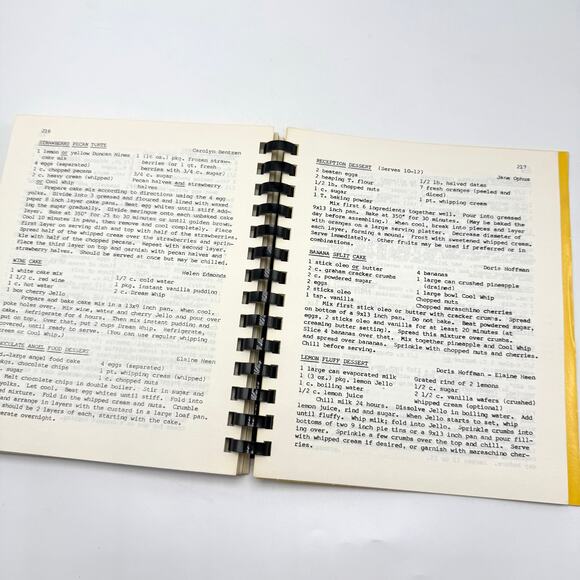 216
STRAWBERRY PECAN TORTE
Carolyn Bentzen
1 lemon or yellow Duncan Hines cake mix
4 eggs (separated)
2 c. chopped pecans
2 c. heavy cream (whipped) or Cool Whip
1 (1½ oz.) pkg. frozen strawberries (or 1 qt. fresh berries with 3/4 c. sugar)
3/4 c. sugar
Pecan halves and strawberry halves
Prepare cake mix according to directions using the 4 egg
yolks. Divide into 3 greased and floured and lined with waxed
paper 8 inch layer cake pans. Beat egg whites until stiff add-
ing the sugar gradually. Divide meringue onto each unbaked cake
layer. Bake at 350° for 25 to 30 minutes or until golden brown.
Cool 10 minutes in pans, then remove and cool completely. Place
first layer on serving dish and top with half of strawberries.
Spread half of the whipped cream over the strawberries and sprin-
kle with half of the chopped pecans. Repeat with second layer.
Place the third layer on top and garnish with pecan halves and
strawberry halves. Should be served at once but may be chilled.
WINE CAKE
Helen Edmonds
1 white cake mix
1 1/2 c. red wine
1 c. hot water
1 box cherry Jello
1/2 c. cold water
1 pkg. instant vanilla pudding
2 c. Dream Whip
Prepare and bake cake mix in a 13x9 inch pan. When cool,
poke holes over. Mix wine, water and cherry Jello and pour over
cake. Refrigerate for 4 hours. Then mix instant pudding and
put on top. Over that, put 2 cups Dream Whip. Refrigerate,
covered, until ready to serve. (You can use regular whipping
CHOCOLATE ANGEL FOOD DESSERT
Elaine Heen
large) angel food cake
chips
sugar
4 eggs (separated)
1 pt. whipping cream (whipped)
1 c. chopped nuts
Melt chocolate chips in double boiler. Stir in sugar and
yolks. Let cool. Beat egg whites until stiff. Fold into
mixture. Fold in the whipped cream and nuts. Crumble
and arrange in layers with the custard in a large loaf pan.
should be 2 layers of each, starting with the cake.
erate overnight.
217
RECEPTION DESSERT (Serves 10-12)
Jane Ophus
2 beaten eggs
2 heaping T. flour
1/2 lb. chopped nuts
1 c. sugar
1 T. baking powder
1/2 lb. halved dates
7 fresh oranges (peeled and diced)
1 pt. whipping cream
Mix first 6 ingredients together well. Pour into greased
9x13 inch pan. Bake at 350° for 30 minutes. (May be baked the
day before assembling.) When cool, break into pieces and layer
with oranges on a large serving platter. Decrease diameter of
each layer, forming a mound. Frost with sweetened whipped cream.
Serve immediately. Other fruits may be used if preferred or in
combinations.
BANANA SPLIT CAKE
Doris Hoffman
1 stick oleo or butter
2 c. graham cracker crumbs
2 c. powdered sugar
2 eggs
2 sticks oleo
1 tsp. vanilla
4 bananas
1 large can crushed pineapple (drained)
1 large bowl Cool Whip
Chopped nuts
Chopped maraschino cherries
Mix first stick oleo or butter with cracker crumbs. Spread
on bottom of a 9x13 inch pan. Beat powdered sugar,
eggs, 2 sticks oleo and vanilla for at least 20 minutes (at
creaming butter setting). Spread this mixture over crumbs.
Slice 4 bananas over that. Mix together pineapple and Cool Whip
and spread over bananas. Sprinkle with chopped nuts and cherries.
Chill before serving.
LEMON FLUFF DESSERT
Doris Hoffman - Elaine Heen
1 large can evaporated milk
1 (3 oz.) pkg. lemon Jello
1 c. boiling water
1/2 c. lemon juice
Grated rind of 2 lemons
1/2 c. sugar
2 1/2 c. vanilla wafers (crushed)
Whipped cream (optional)
Chill milk 24 hours. Dissolve Jello in boiling water. Add
lemon juice, rind and sugar. When Jello starts to set, whip
until fluffy. Whip milk; fold into Jello. Sprinkle crumbs into
bottoms of two 9 inch pie tins or a 9x13 inch pan and pour fill-
ing over. Sprinkle a few crumbs over the top and chill. Serve
with whipped cream if desired, or garnish with maraschino cher-
ries.